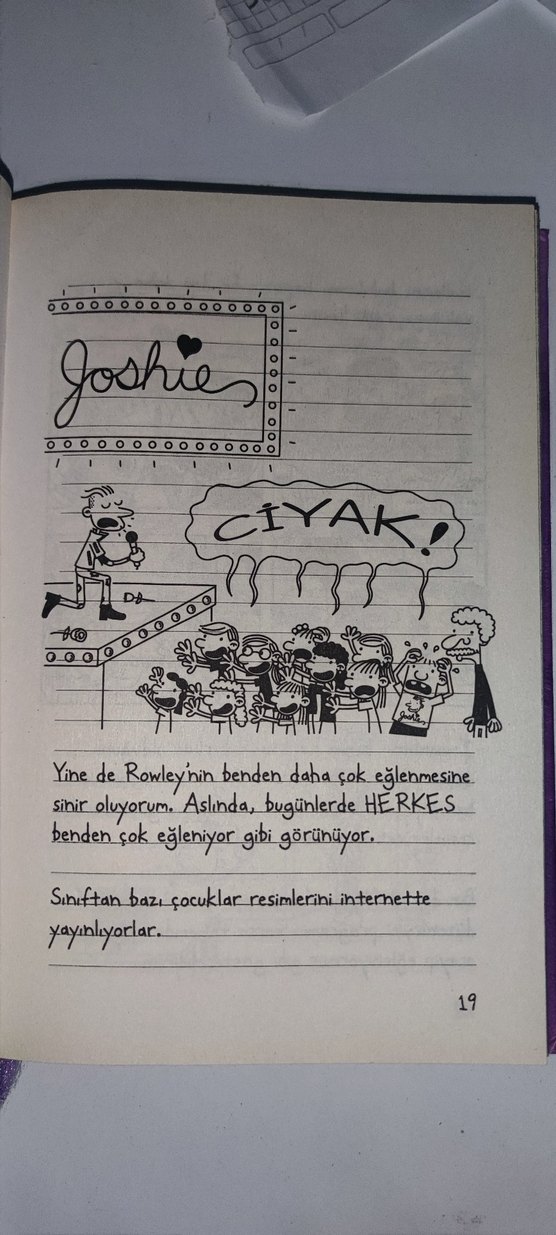 Joshie
CİYAK!
Joshie
Yine de Rowley'nin benden daha çok eğlenmesine
sinir oluyorum. Aslında, bugünlerde HERKES
benden çok eğleniyor gibi görünüyor.
Sınıftan bazı çocuklar resimlerini internette
yayınlıyorlar.
19